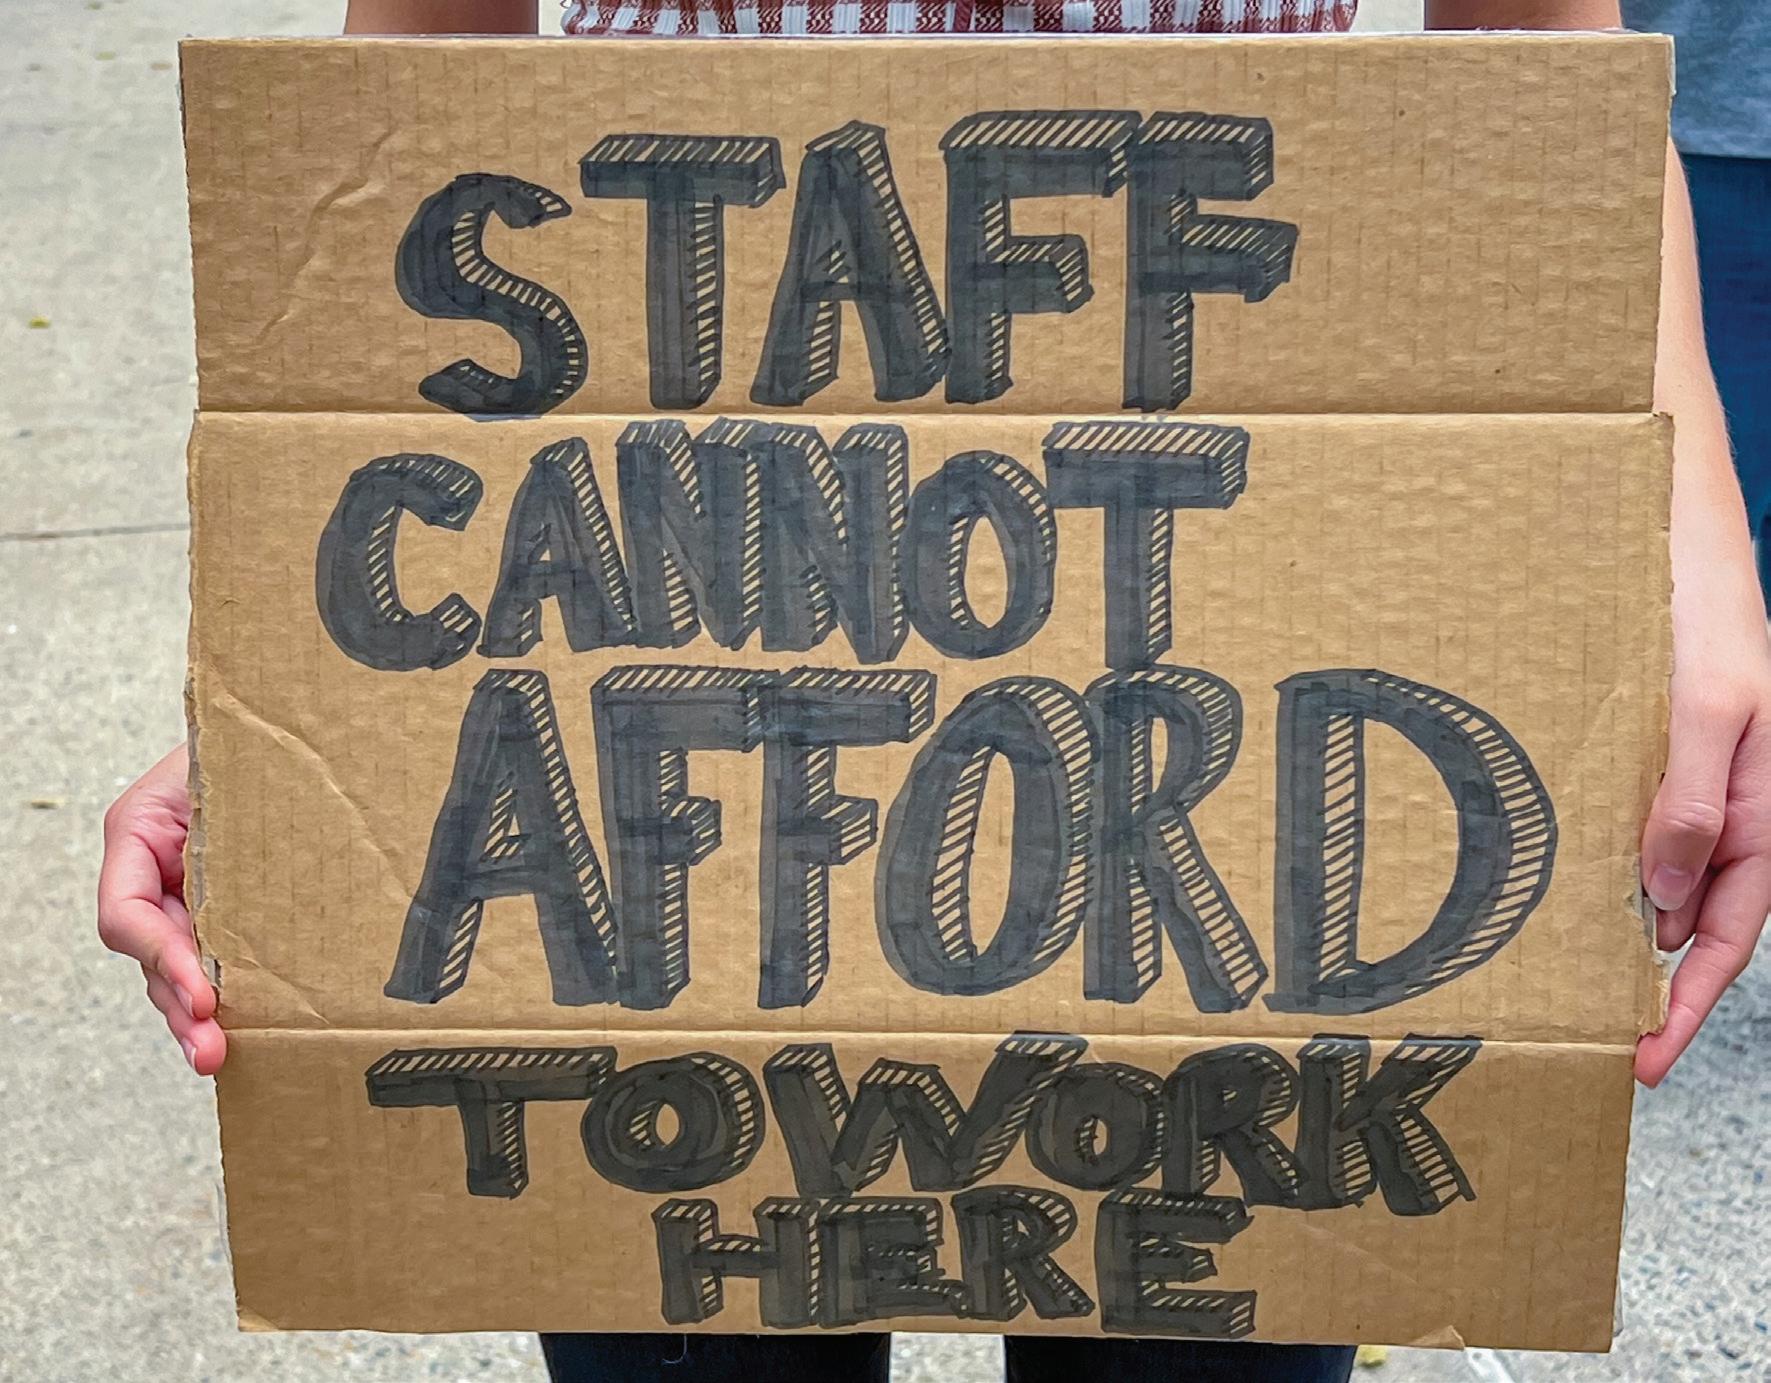 STAFF
CANNOT
AFFORD
TO WORK
HERE